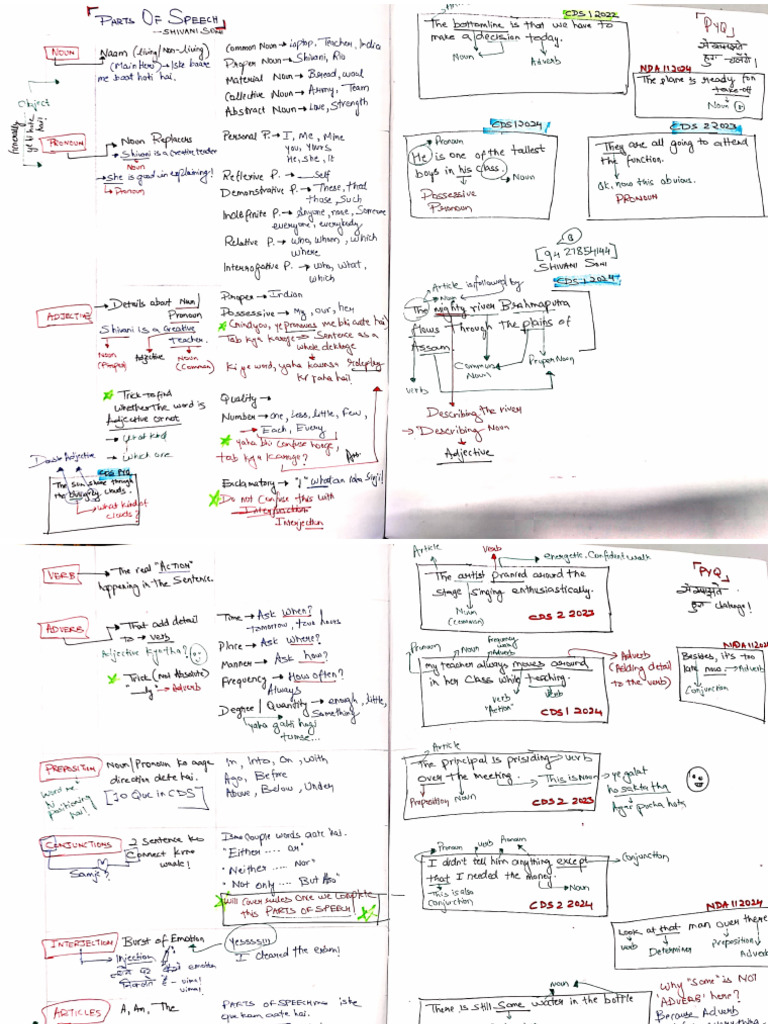 PARTS OF SPEECH
-- SHIVANI SONI
NOUN
Naam (living/Non-living)
(Main Hero) → Iske baare
me baat hoti hai.
Common Noun → laptop, Teacher, India
Proper Noun → Shivani, Rio
Material Noun → Bread, wool
Collective Noun → Army, Team
Abstract Noun → Love, Strength
Object
Generally
ye bhi hote
hai!
PRONOUN
Noun Replacers
→ Shivani is a creative teacher
Noun
→ She is good in explaining!
Pronoun
Personal P. → I, Me, Mine
you, yours
He, she, it
Reflexive P. → __self
Demonstrative P. → These, that
those, such
Indefinite P. → Anyone, none, Someone
everyone, everybody
Relative P. → who, whom, which
where
Interrogative P. → who, what,
which
ADJECTIVE
Details about Noun/
Pronoun
Shivani is a creative
Teacher.
Noun
(Proper)
Adjective
Noun
(Common)
Proper → Indian
Possessive → My, our, her
Tab kya karoge → Sentence as a
whole dekhoge
Ki ye word, yaha kaunsa roleplay
kr raha hai!
Trick-to find
whether the word is
Adjective or not
→ what kind
→ which one
Quality →
Number → one, less, little, few,
→ Each, Every
yaha bhi confuse honge!
tab kya karoge?
Exclamatory → "!" What an idea Sirji!
Do not confuse this with
Interjunction
Interjection
CDS PYQ
The sun shone through
the clouds.
→ what kind of
clouds?
CDS 1 2022
The bottomline is that we have to
make a decision today.
Noun
Adverb
「PYQ」
NDA 1 2024
The plane is ready for
take-off
Noun
CDS 1 2024
Pronoun
He is one of the tallest
boys in his class.
Noun
Possessive
Pronoun
CDS 2 2023
They are all going to attend
the function.
Ok, now this obvious.
PRONOUN
[9427854144]
SHIVANI SONI
CDS 1 2024
Article is followed by
Noun
The mighty river Brahmaputra
flows through the plains of
Assam.
Verb
Common
Noun
Proper Noun
Describing the river
→ Describing Noun
Adjective
VERB
→ The real "ACTION"
happening in the Sentence.
ADVERB
That add detail
to → verb
Adjective kya tha?
Trick (not Absolute)
"__ly" → Adverb
Time → Ask When?
tomorrow, two hours
Place → Ask Where?
Manner → Ask how?
Frequency → How often?
Always
Degree/Quantity → enough, little,
Something
yaha galti hogi
tumse...
PREPOSITION
Noun/Pronoun ko aage
direction dete hai.
[10 Que in CDS]
In, Into, On, with
Ago, Before
Above, Below, Under
CONJUNCTIONS
2 sentence ko
Connect krne
waale!
Samjhe?
Isme couple words aate hai.
"Either ..... or"
• Neither ..... Nor"
• Not only .... But Also"
Will cover rules once we complete
this PARTS OF SPEECH
INTERJECTION
Burst of Emotion
→ Injection
Yessss!!!
I cleared the exam!
ARTICLES
A, An, The
PARTS OF SPEECH me iske
que kam aate hai.
Article
Verb
energetic. Confident walk
The artist pranced around the
stage singing enthusiastically.
Noun
(Common)
CDS 2 2023
「PYQ」
Pronoun
Noun
Frequency
Adverb
my teacher always moves around
in her class while teaching.
verb
"Action"
verb
CDS 1 2024
Adverb
(Adding detail
to the verb)
NDA 1 2024
Besides, it's too
late now → Adverb
Conjunction
Article
The principal is presiding → verb
over the meeting. → This is Noun
Preposition
Noun
CDS 2 2023
→ ye galat
ho sakta tha
Agar pucha hota
Pronoun
verb
Pronoun
I didn't tell him anything except
that I needed the money.
→ Conjunction
This is also
conjunction
Noun
CDS 2 2024
NDA 1 2024
Look at that man over there
verb
Determiner
Preposition
Adverb
noun
There is still some water in the bottle
Why "some" is NOT
'ADVERB' here?
Because Adverb